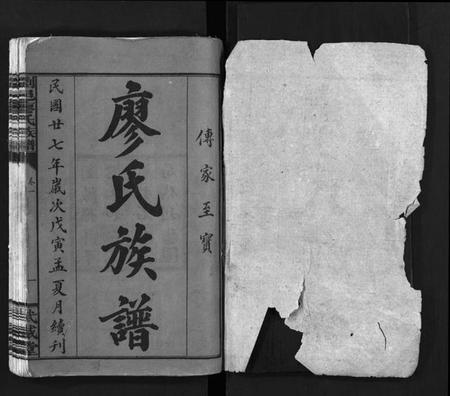 傳家至寶
廖氏族譜
民國廿七年歲次戊寅孟夏月續刊
卷一